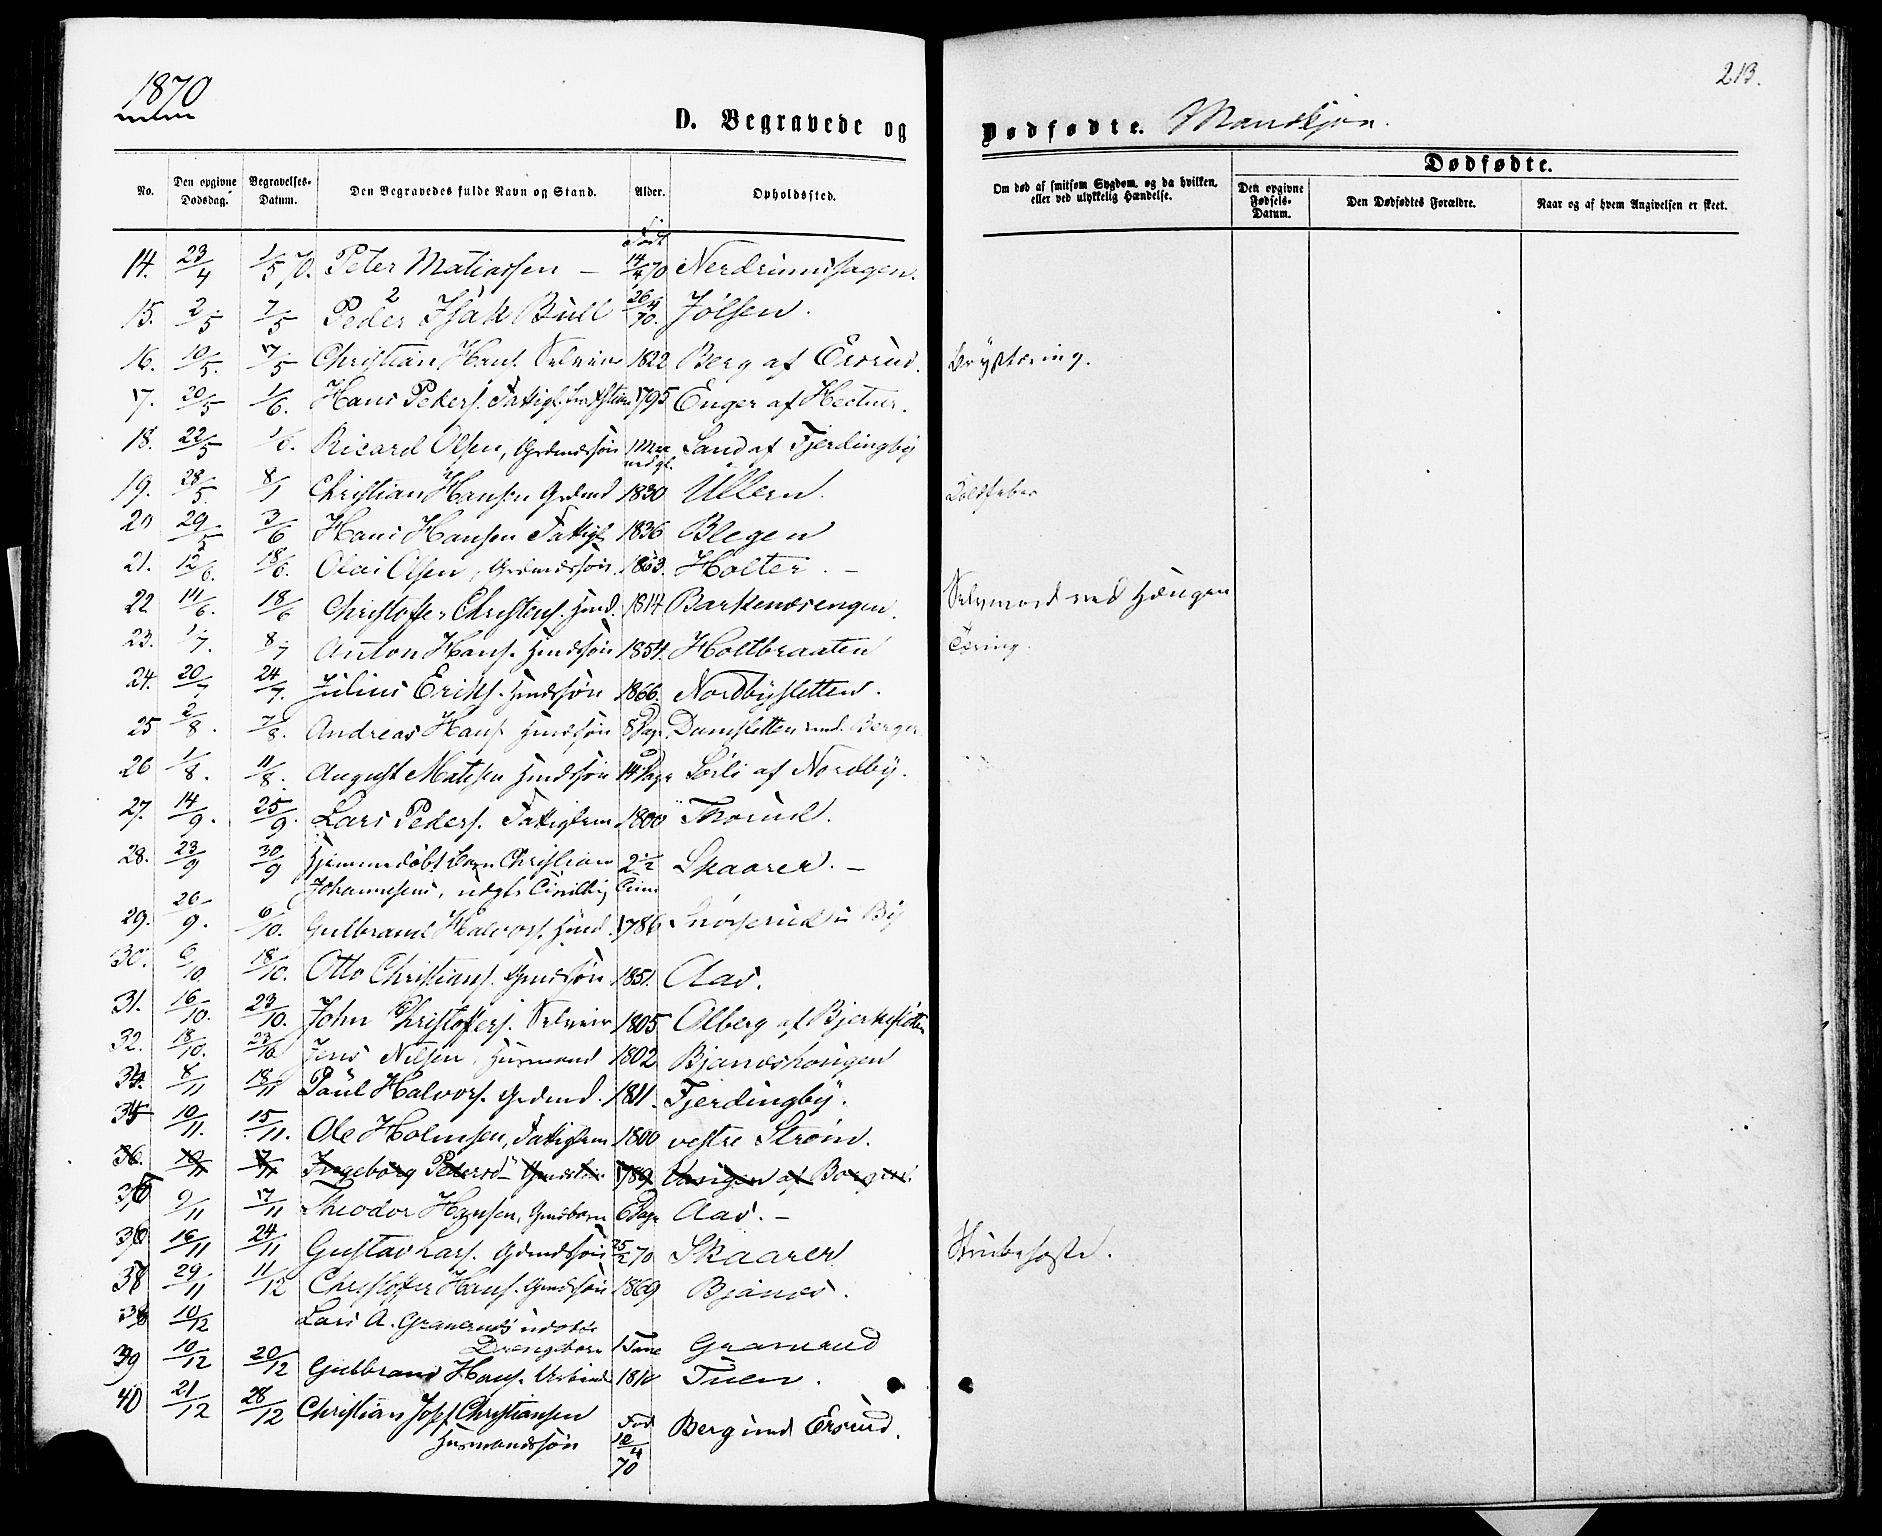 1870
213.
D. Begravede og Dødfødte. Mandkjøn.
No. Den opgivne Dødsdag. Begravelses-Datum. Den Begravedes fulde Navn og Stand. Alder. Opholdssted. Om død af smitsom Sygdom, og da hvilken, eller ved ulykkelig Hændelse. Dødfødte. Den opgivne Fødsels-Datum. Den Dødfødtes Forældre. Naar og af hvem Angivelsen er skeet.
14. 23/4 1/5 70. Peter Matiassen — Født 14/4 70 Nerdrumshagen.
15. 2/5 7/5 Peder Isak Bull 26/4 70. Jølsen.
16. 10/5. 17/5 Christian Hans. Selveier 1822 Berg af Ersrud. Brysttæring.
17. 20/5 1/6. Hans Peders. Fattigl. 1795 Enger af Hectner.
18. 22/5 1/6. Ricard Olsen, Grdmdssøn 1 Maaned gl. Sand af Fjerdingby
19. 28/5. 8/1 Christian Hansen Grdmd 1830 Ullern. Koldfeber
20 29/5 3/6 Hans Hansen Fattigl 1836 Blegen
21. 12/6. 18/6. Olai Olsen, Grdmdssøn. 1863. Holter. —
22 14/6. 18/6 Christoffer Christens. Hmd. 1814 Barkenæsengen. Selvmord ved Hængen
23. 1/7. 8/7 Anton Hans. Hmdssøn 1854. Holtbraaten Tæring.
24. 20/7 24/7. Julius Eriks. Hmdssøn 1866. Nordbysletten.
25 2/8. 7/8. Andreas Hans. Hmdssøn 8 Dage Damsletten und. Berger
26 1/8. 11/8. August Matisen Hmdssøn 14 Dage Sørli af Nordby.
27. 14/9. 25/9. Lars Peders. Fattiglem 1800 Thorud.
28. 23/9 30/9 Hjemmedøbt Barn Christian 2 1/2 Skaarer. —
Johannesens, uægte Time
29. 26/9. 6/10. Gulbrand Halvors. Hmd. 1786 Snøserud u By
30. 6/10. 18/10. Otto Christians. Gmdssøn 1851. Aas.
31. 16/10. 23/10. John Christoffers. Selveier 1805. Olberg af Bjerkesletten
32. 18/10. 23/10 Jens Nilsen, Husmand 1802 Bjanæshougen
34. 8/11 18/11 Paul Halvors. Grdmd. 1811. Fjerdingby.
35 10/11. 15/11. Ole Holmsen, Fattiglem 1800 vestre Strøm.
36. 10/11 7/11 Ingeborg Pedersd 1789 af
9/11 17/11 Theodor Hansen, Gmdbarn 6 Dage Aas. —
16/11 24/11 Gustav Lars. Grdmdssøn 25/2 70 Skaarer Strubehoste.
38 29/11 11/12 Christoffer Hans. Gmdssøn 1869 Bjanæs.
38 10/12 Lars A. Gramruds udøbte
Drengebarn 1 Time Gramrud
39 10/12 20/12 Gulbrand Hans. 1810 Tuen.
40 21/12 28/12 Christian Josef Christiansen Fød 12/4 70 Berg und Ersrud.
Husmandssøn